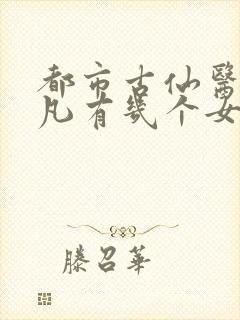 都市古仙醫
凡有幾个女
滕召華